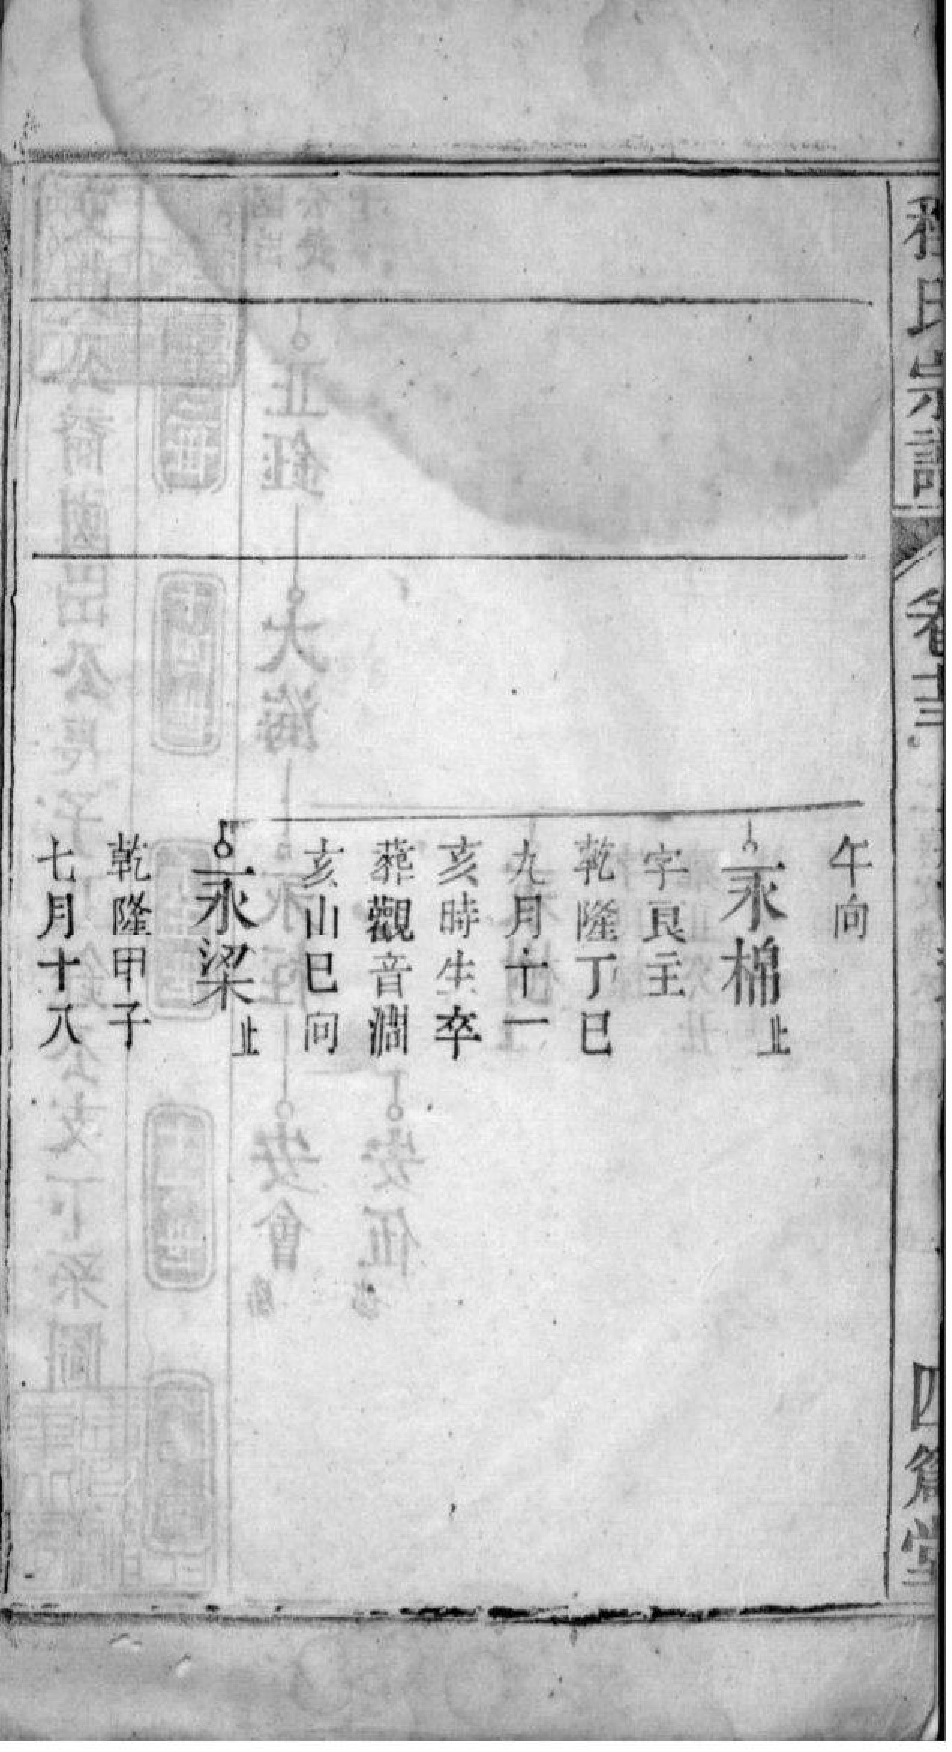 氏宗譜
卷十三
四篇堂
午向
永棉 止
字良主
乾隆丁巳
九月十一
亥時生卒
葬觀音澗
亥山巳向
永梁 止
乾隆甲子
七月十八